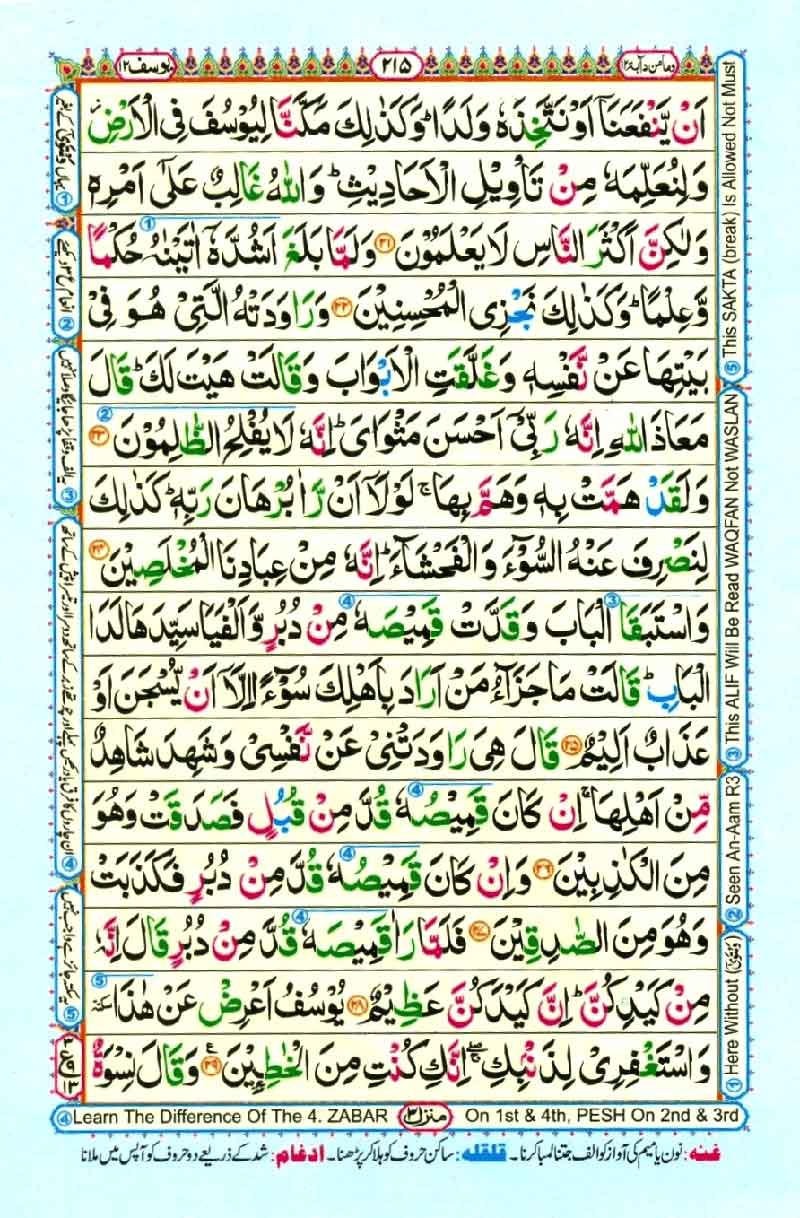 وما من دآبة ۱۲
۲۱۵
یوسف ۱۲
اَنۡ یَّنۡفَعَنَاۤ اَوۡ نَتَّخِذَهٗ وَلَدًا ؕ وَكَذٰلِكَ مَكَّنَّا لِیُوۡسُفَ فِی الۡاَرۡضِ ۫
وَلِنُعَلِّمَهٗ مِنۡ تَاۡوِیۡلِ الۡاَحَادِیۡثِ ؕ وَاللّٰهُ غَالِبٌ عَلٰۤی اَمۡرِهٖ
وَلٰكِنَّ اَكۡثَرَ النَّاسِ لَا یَعۡلَمُوۡنَ ﴿۲۱﴾ وَلَمَّا بَلَغَ اَشُدَّهٗۤ اٰتَیۡنٰهُ حُكۡمًا ①
وَّعِلۡمًا ؕ وَكَذٰلِكَ نَجۡزِی الۡمُحۡسِنِیۡنَ ﴿۲۲﴾ وَرَاوَدَتۡهُ الَّتِیۡ هُوَ فِیۡ
بَیۡتِهَا عَنۡ نَّفۡسِهٖ وَغَلَّقَتِ الۡاَبۡوَابَ وَقَالَتۡ هَیۡتَ لَكَ ؕ قَالَ
مَعَاذَ اللّٰهِ اِنَّهٗ رَبِّیۡۤ اَحۡسَنَ مَثۡوَایَ ؕ اِنَّهٗ لَا یُفۡلِحُ الظّٰلِمُوۡنَ ② ﴿۲۳﴾
وَلَقَدۡ هَمَّتۡ بِهٖ وَهَمَّ بِهَا ۚ لَوۡلَاۤ اَنۡ رَّاٰ بُرۡهَانَ رَبِّهٖ ؕ كَذٰلِكَ
لِنَصۡرِفَ عَنۡهُ السُّوۡٓءَ وَالۡفَحۡشَآءَ ؕ اِنَّهٗ مِنۡ عِبَادِنَا الۡمُخۡلَصِیۡنَ ﴿۲۴﴾
وَاسۡتَبَقَا ③ الۡبَابَ وَقَدَّتۡ قَمِیۡصَهٗ ④ مِنۡ دُبُرٍ وَّاَلۡفَیَا سَیِّدَهَا لَدَا
الۡبَابِ ؕ قَالَتۡ مَا جَزَآءُ مَنۡ اَرَادَ بِاَهۡلِكَ سُوۡٓءًا اِلَّاۤ اَنۡ یُّسۡجَنَ اَوۡ
عَذَابٌ اَلِیۡمٌ ﴿۲۵﴾ قَالَ هِیَ رَاوَدَتۡنِیۡ عَنۡ نَّفۡسِیۡ وَشَهِدَ شَاهِدٌ
مِّنۡ اَهۡلِهَا ۚ اِنۡ كَانَ قَمِیۡصُهٗ ④ قُدَّ مِنۡ قُبُلٍ فَصَدَقَتۡ وَهُوَ
مِنَ الۡكٰذِبِیۡنَ ﴿۲۶﴾ وَاِنۡ كَانَ قَمِیۡصُهٗ ④ قُدَّ مِنۡ دُبُرٍ فَكَذَبَتۡ
وَهُوَ مِنَ الصّٰدِقِیۡنَ ﴿۲۷﴾ فَلَمَّا رَاٰ قَمِیۡصَهٗ ④ قُدَّ مِنۡ دُبُرٍ قَالَ اِنَّهٗ
مِنۡ كَیۡدِكُنَّ ؕ اِنَّ كَیۡدَكُنَّ عَظِیۡمٌ ﴿۲۸﴾ یُوۡسُفُ اَعۡرِضۡ عَنۡ هٰذَا ٚ سكتة ⑤
وَاسۡتَغۡفِرِیۡ لِذَنۡۢبِكِ ۚۖ اِنَّكِ كُنۡتِ مِنَ الۡخٰطِـِٕیۡنَ ﴿۲۹﴾ وَقَالَ نِسۡوَةٌ
⑤ This SAKTA (break) Is Allowed Not Must
③ This ALIF Will Be Read WAQFAN Not WASLAN
② Seen An-Aam R3
① Here Without (وَاسْتَوٰى)
④ Learn The Difference Of The 4. ZABAR
منزل ۳
On 1st & 4th, PESH On 2nd & 3rd
غنہ: نون یا میم کی آواز کو الف جتنا لمبا کرنا۔ قلقلہ: ساکن حروف کو ہلا کر پڑھنا۔ ادغام: شد کے ذریعے دو حروف کو آپس میں ملانا